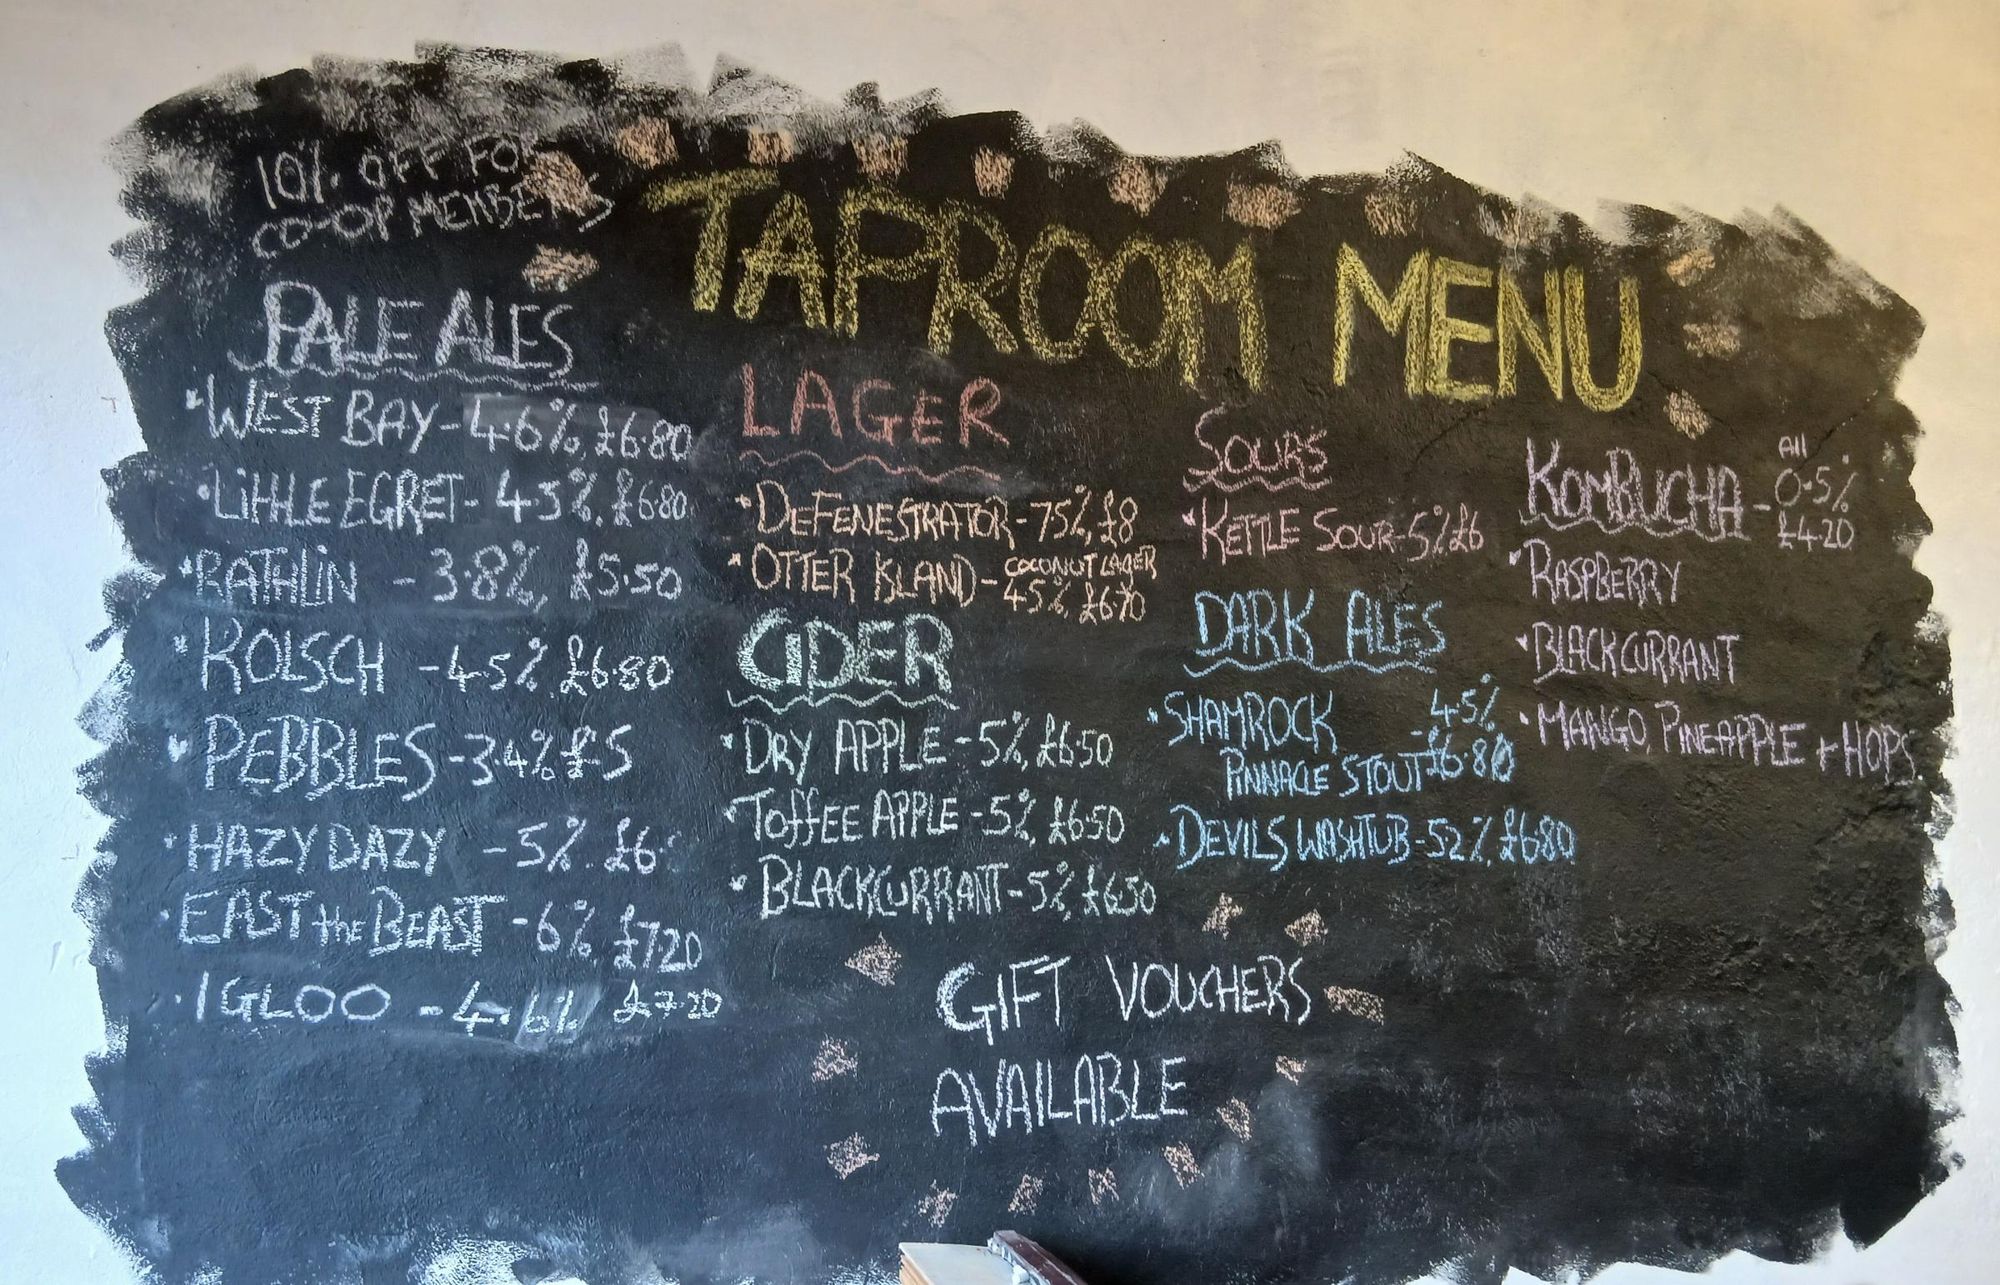 10% OFF FOR
CO-OP MEMBERS
TAPROOM MENU
PALE ALES
• WEST BAY - 4.6%, £6.80
• LITTLE EGRET - 4.5%, £6.80
• RATHLIN - 3.8%, £5.50
• KOLSCH - 4.5%, £6.80
• PEBBLES - 3.4% £5
• HAZY DAZY - 5%. £6
• EAST the BEAST - 6%, £7.20
• IGLOO - 4.6% £7.20
LAGER
• DEFENESTRATOR - 7.5%, £8
• OTTER ISLAND - COCONUT LAGER
4.5%, £6.70
CIDER
• DRY APPLE - 5%, £6.50
• TOFFEE APPLE - 5%, £6.50
• BLACKCURRANT - 5%, £6.50
SOURS
• KETTLE SOUR - 5% £6
DARK ALES
• SHAMROCK - 4.5%
PINNACLE STOUT £6.80
• DEVILS WASHTUB - 5.2%, £6.80
All
KOMBUCHA - 0.5%
£4.20
• RASPBERRY
• BLACKCURRANT
• MANGO, PINEAPPLE + HOPS
GIFT VOUCHERS
AVAILABLE